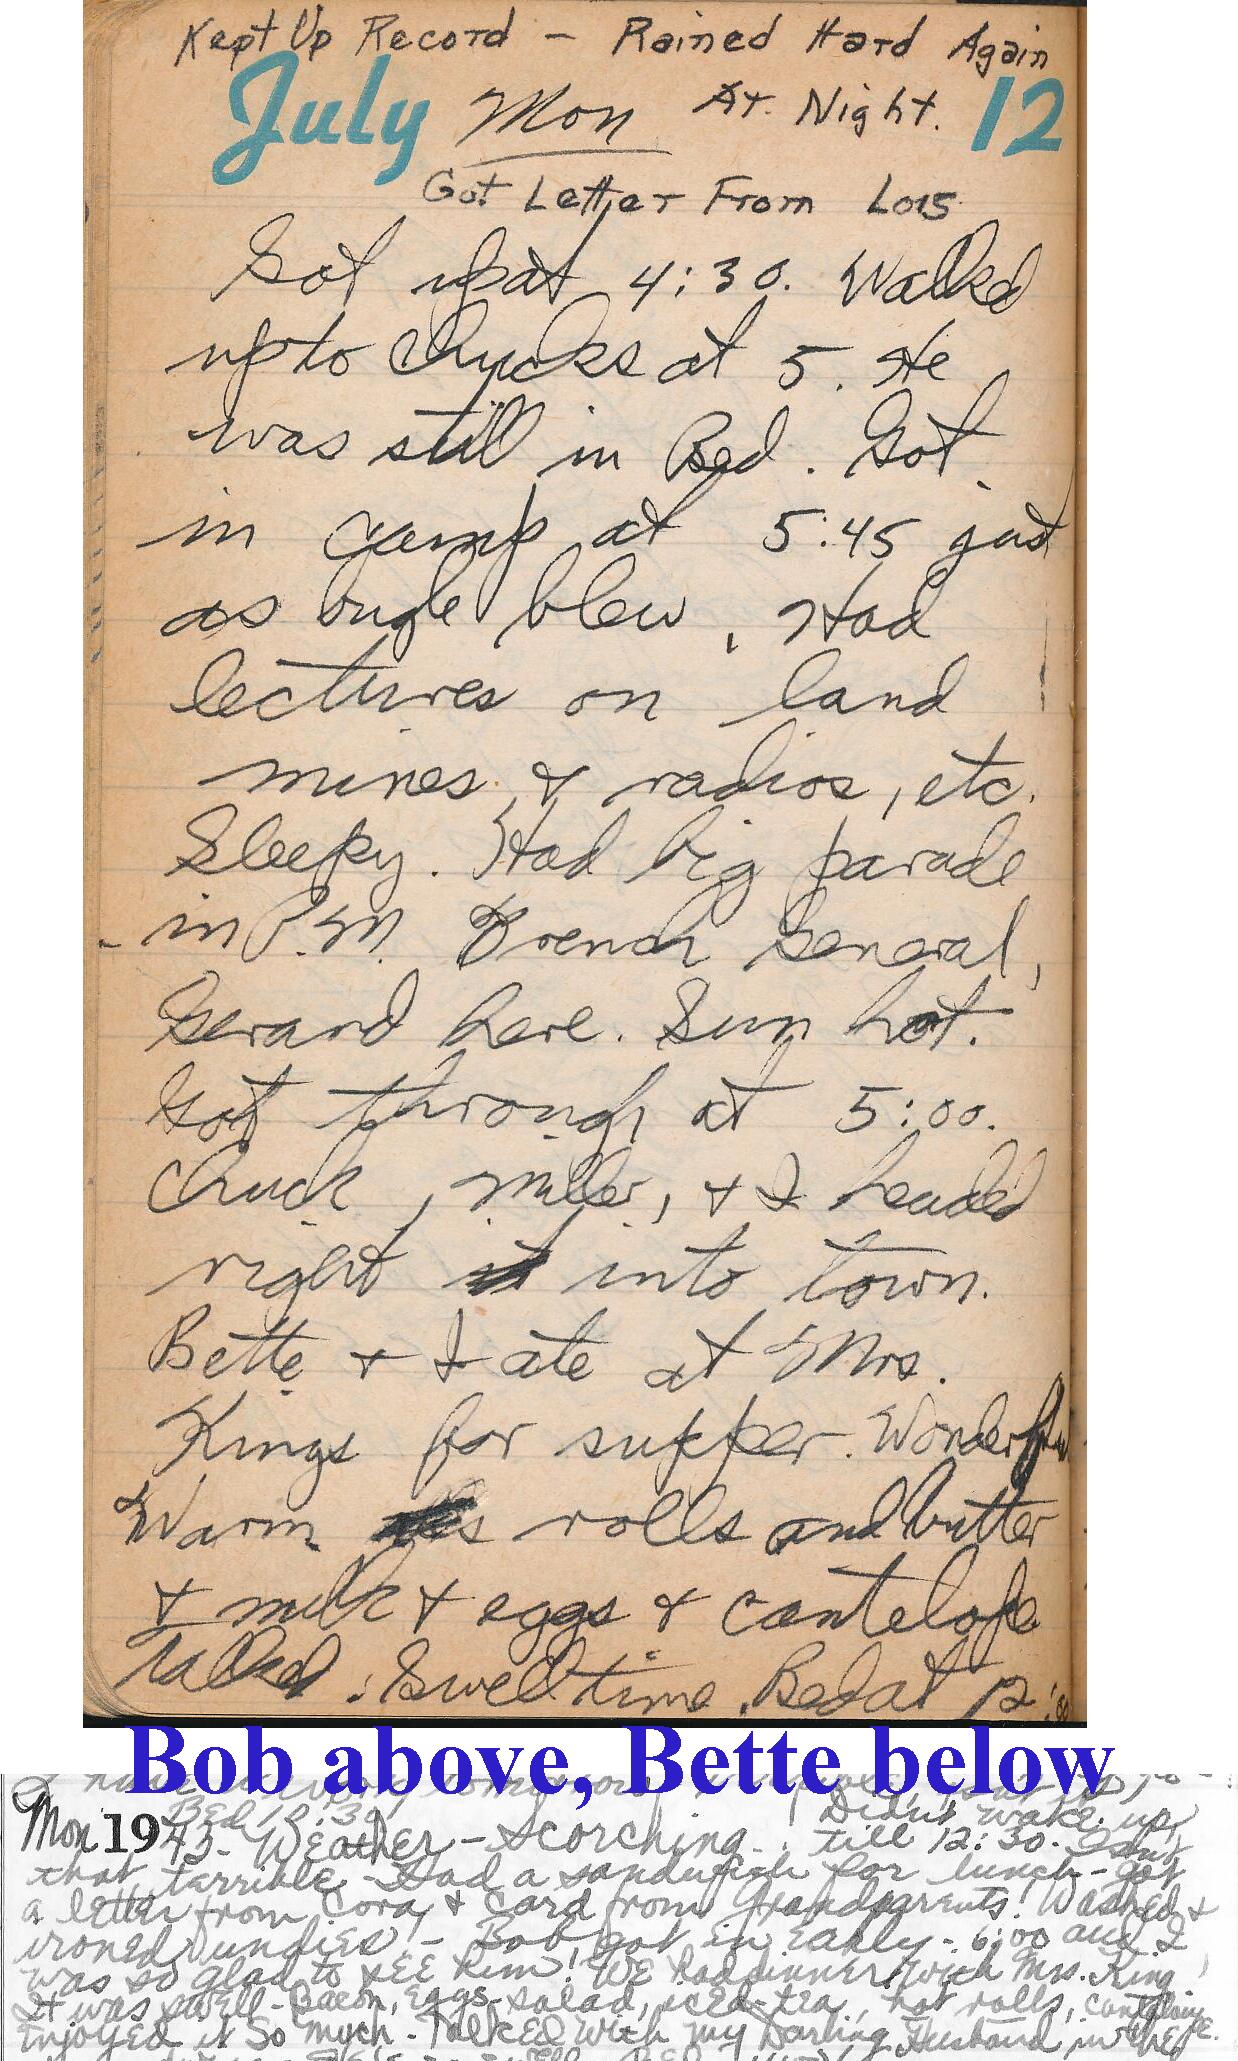 Kept Up Record - Rained Hard Again
July Mon At. Night. 12
Got Letter From Lois
Got up at 4:30. Walked
up to Chucks at 5. He
was still in Bed. Got
in camp at 5:45 just
as bugle blew, Had
lectures on land
mines, & radios, etc.
Sleepy. Had big parade
in P.M. French General,
Gerard here. Sun hot.
Got through at 5:00.
Chuck, Miller, & I headed
right into town.
Bette & I ate at Mrs.
Kings for supper. Wonderful
Warm rolls and butter
& milk & eggs & cantelope
Talked. Swell time. Bed at 12:00
Bob above, Bette below
Bed 12:30 Didn't wake up
Mon 1943- Weather - Scorching. till 12:30. Isn't
that terrible - Had a sandwich for lunch - got
a letter from Cora & card from Grandparents. Washed &
ironed undies! - Bob got in early - 6:00 and I
was so glad to see him! We had dinner with Mrs. King
It was swell - Bacon, eggs, salad, iced-tea, hot rolls, cantaloupe.
Enjoyed it so much - Talked with my Darling Husband in the